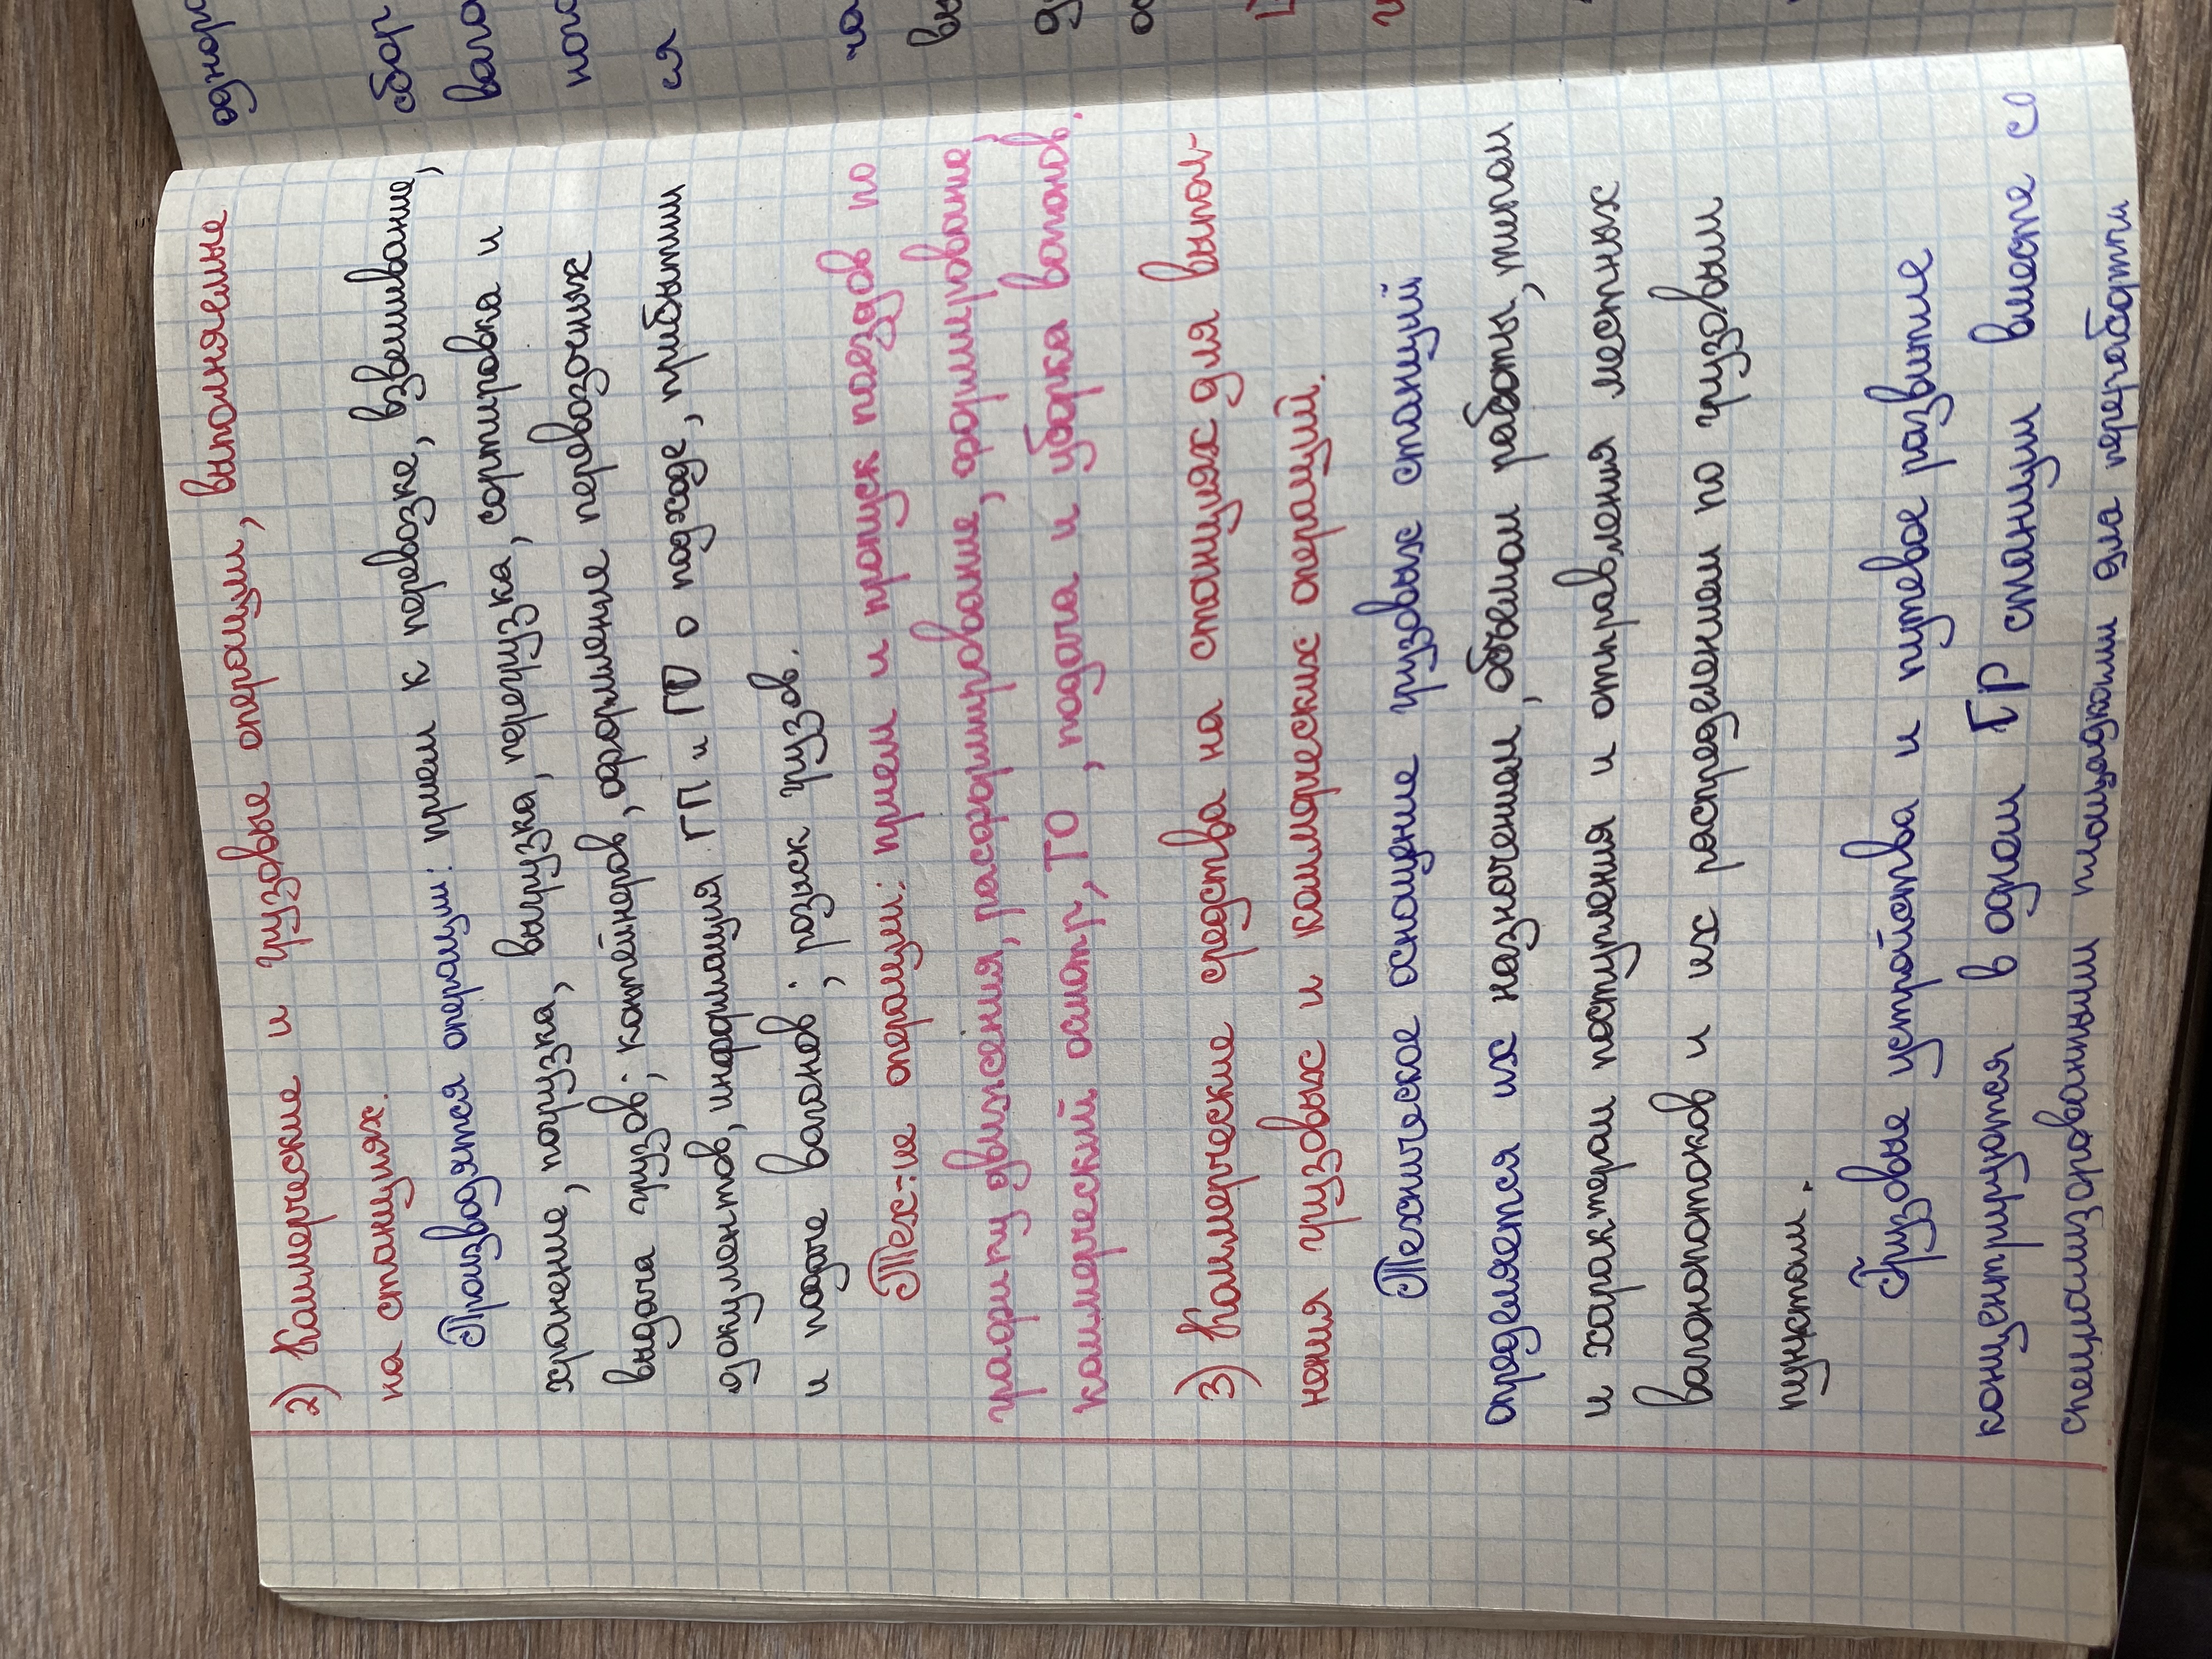 2) Коммерческие и грузовые операции, выполняемые
на станциях.
Производятся операции: прием к перевозке, взвешивание,
хранение, погрузка, выгрузка, перегрузка, сортировка и
выдача грузов; контейнеров, оформление перевозочных
документов, информация ГП и ГО о подходе, прибытии
и подаче вагонов; розыск грузов.
Тех-ие операции: прием и пропуск поездов по
графику движения, расформирование, формирование,
коммерческий осмотр, ТО, подача и уборка вагонов.
3) Коммерческие средства на станциях для выпол-
нения грузовых и коммерческих операций.
Техническое оснощение грузовых станций
определяется их назначением, объемом работы, типом
и характером поступления и отправления местных
вагонопотоков и их распределением по грузовым
пунктам.
Грузовые устройства и путевое развитие
концентрируются в одном ГР станции вместе со
специализированными площадками для переработки
однор
сбор
ваго
ся